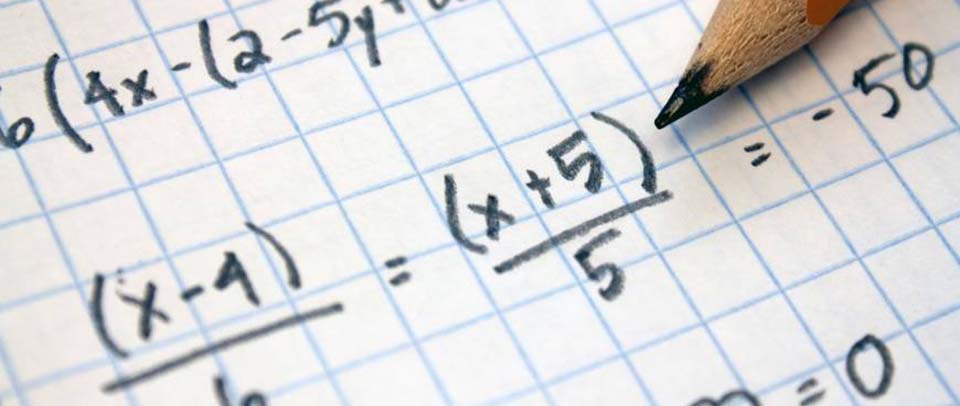 6(4x-(2-5y+
= -50
(x-4)/6 = (x+5)/5
= 0